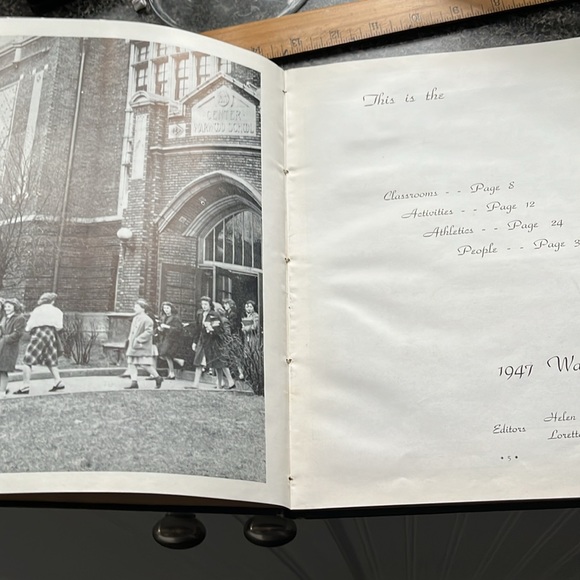 CENTER
This is the
Classrooms - - Page 8
Activities - - Page 12
Athletics - - Page 24
People - - Page 3
1947 Wa
Helen
Editors Lorett
• 5 •